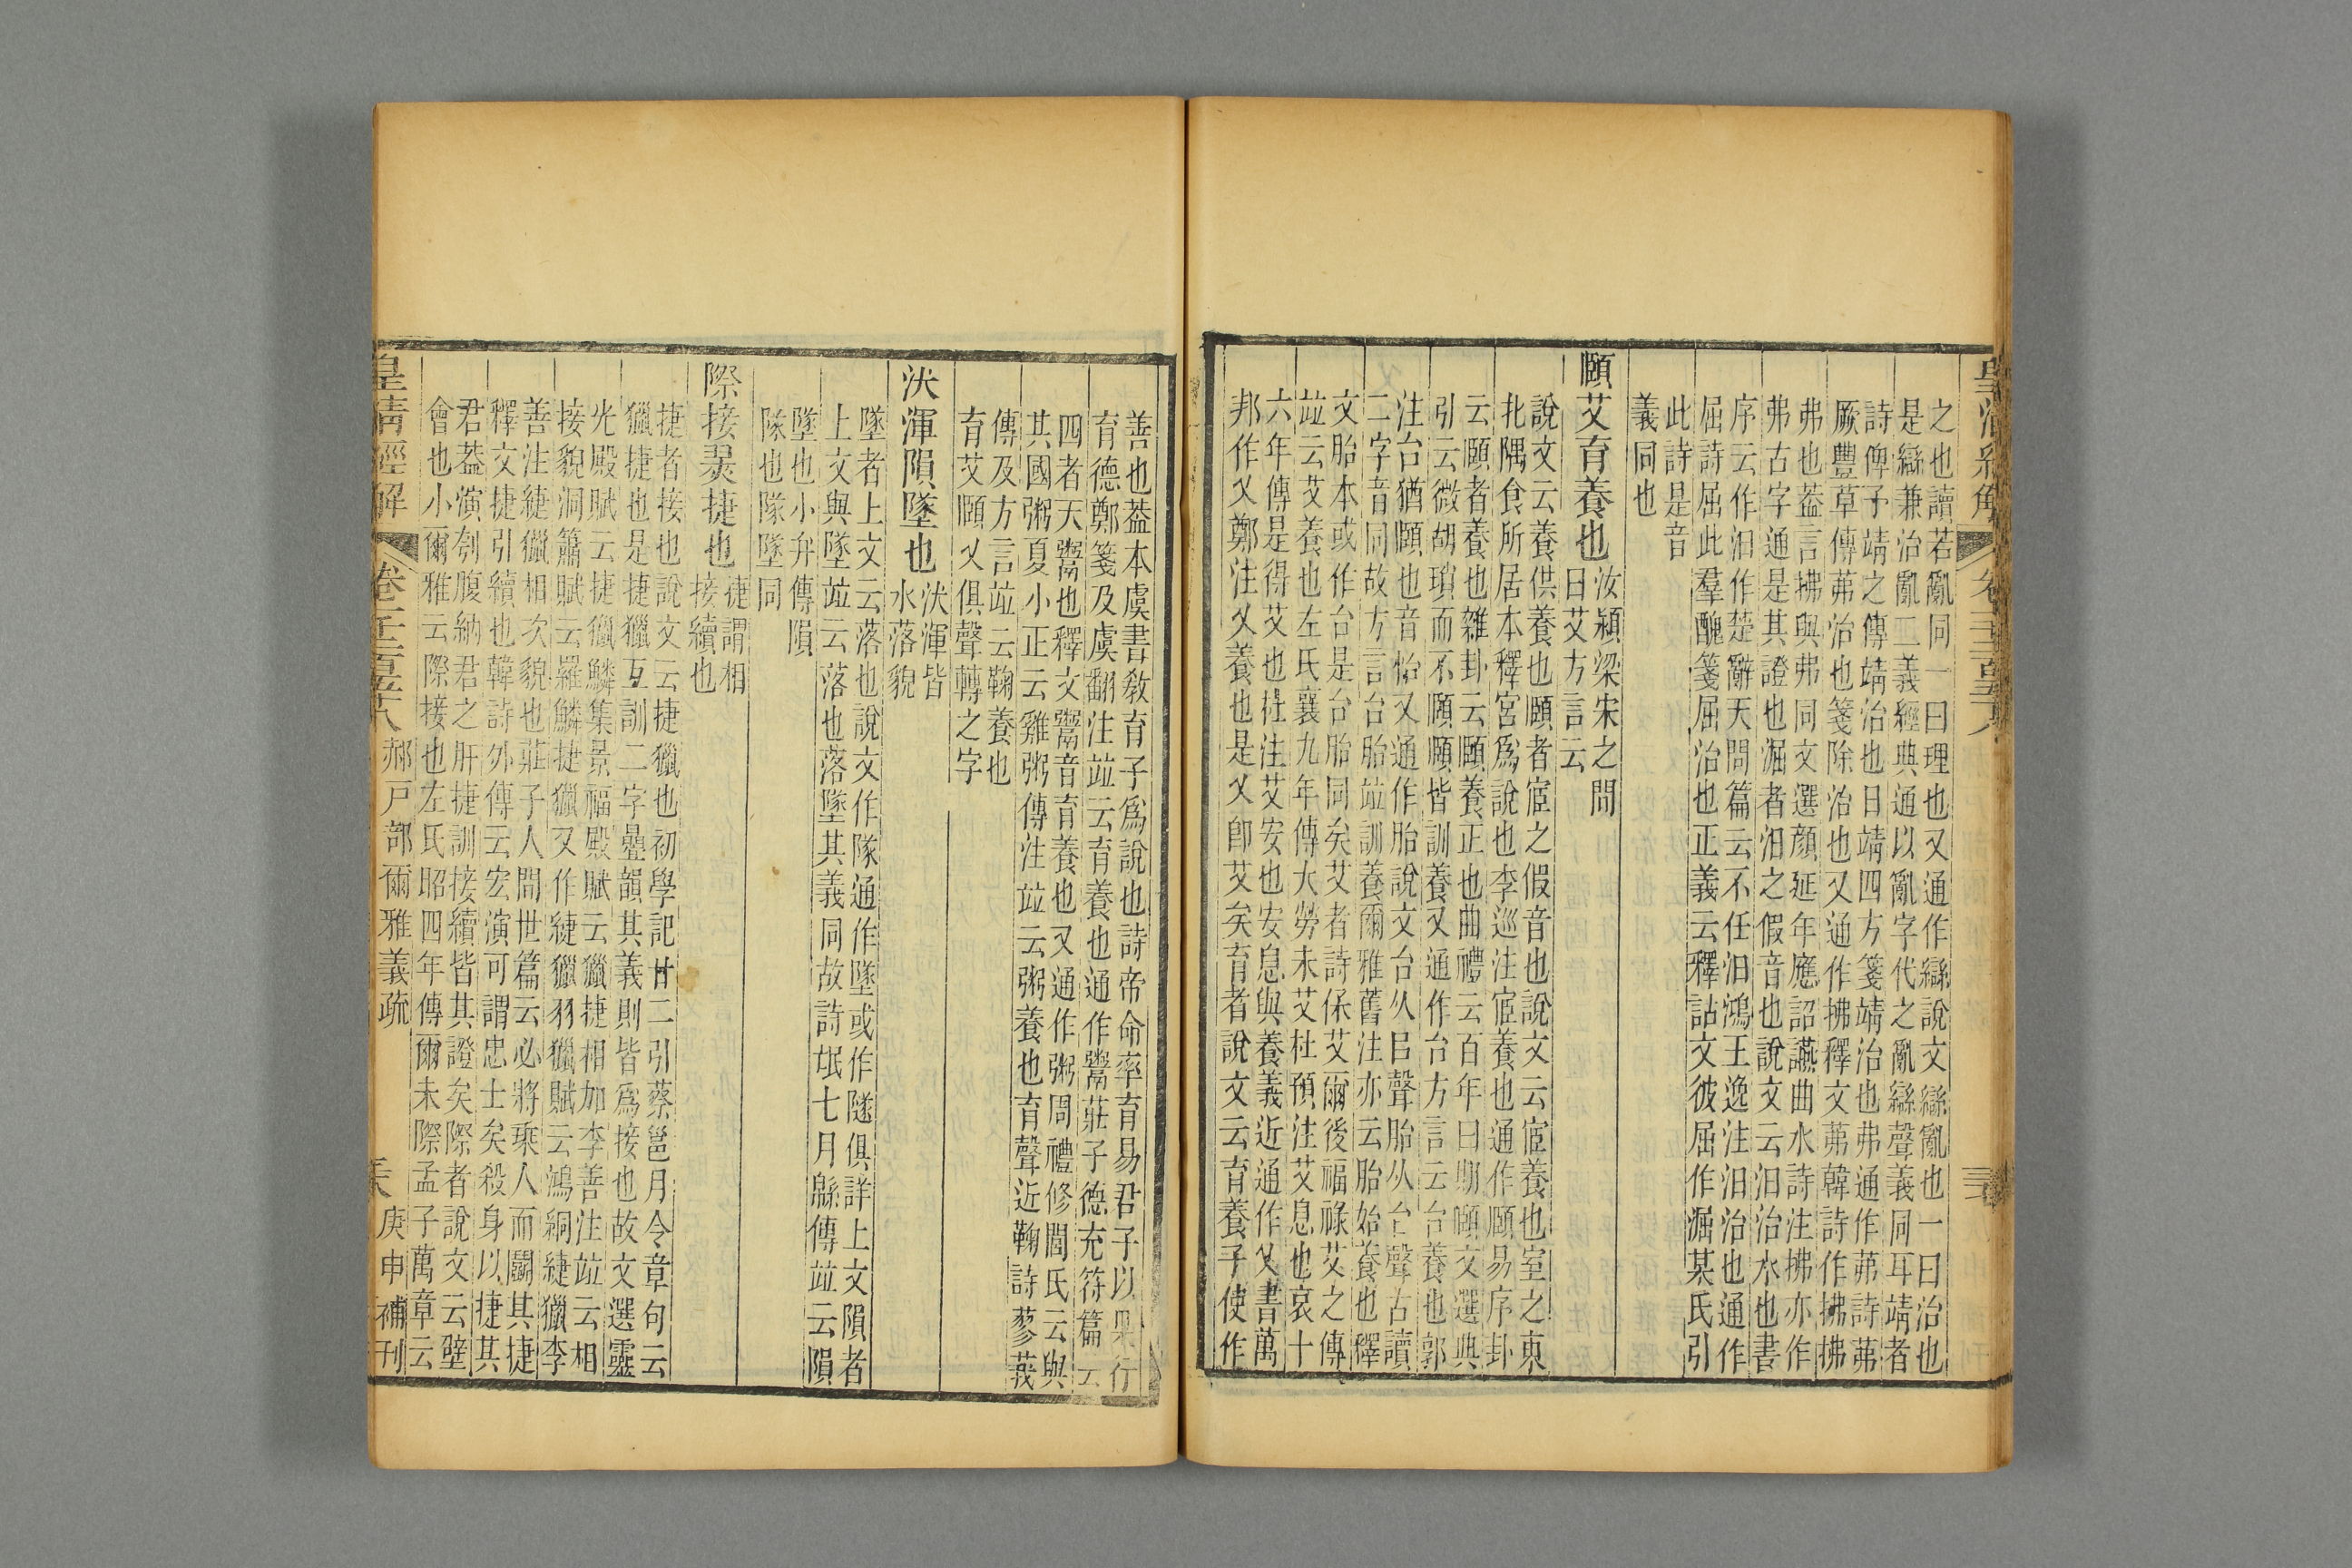 之也讀若亂同一曰理也又通作䜌說文䜌亂也一曰治也
是䜌兼治亂二義經典通以亂字代之亂䜌聲義同耳靖者
詩俾予靖之傳靖治也日靖四方箋靖治也弗通作茀詩茀
厥豐草傳茀治也箋除治也又通作拂釋文茀韓詩作拂拂
弗也葢言拂與弗同文選顏延年應詔讌曲水詩注拂亦作
弗古字通是其證也淈者汩之假音也說文云汩治水也書
序云作汩作楚辭天問篇云不任汩鴻王逸注汩治也通作
屈詩屈此羣醜箋屈治也正義云釋詁文彼屈作淈某氏引
此詩是音
義同也
頤艾育養也
汝潁梁宋之閒
曰艾方言云
說文云養供養也頤者宧之假音也說文云宧養也室之東
北隅食所居本釋宮爲說也李巡注宧養也通作頤易序卦
云頤者養也雜卦云頤養正也曲禮云百年曰期頤文選典
引云微胡瑣而不頤頤皆訓養又通作台方言云台養也郭
注台猶頤也音怡又通作胎說文台从㠯聲胎从台聲古讀
二字音同故方言台胎竝訓養爾雅舊注亦云胎始養也釋
文胎本或作台是台胎同矣艾者詩保艾爾後福祿艾之傳
竝云艾養也左氏襄九年傳大勞未艾杜預注艾息也哀十
六年傳是得艾也杜注艾安也安息與養義近通作乂書萬
邦作乂鄭注乂養也是乂卽艾矣育者說文云育養子使作
善也葢本虞書敎育子爲說也詩帝命率育易君子以果行
育德鄭箋及虞翻注竝云育養也通作鬻莊子德充符篇云
四者天鬻也釋文鬻音育養也又通作粥周禮修閭氏云與
其國粥夏小正云雞粥傳注竝云粥養也育聲近鞠詩蓼莪
傳及方言竝云鞠養也
育艾頤乂俱聲轉之字
汱渾隕墜也
汱渾皆
水落貌
墜者上文云落也說文作隊通作墜或作隧俱詳上文隕者
上文與墜竝云落也落墜其義同故詩氓七月緜傳竝云隕
墜也小弁傳隕
隊也隊墜同
際接翜捷也
捷謂相
接續也
捷者接也說文云捷獵也初學記廿二引蔡邕月令章句云
獵捷也是捷獵互訓二字疊韻其義則皆爲接也故文選靈
光殿賦云捷獵鱗集景福殿賦云獵捷相加李善注竝云相
接貌洞簫賦云羅鱗捷獵又作緁獵羽獵賦云鴻絅緁獵李
善注緁獵相次貌也莊子人閒世篇云必將乘人而鬭其捷
釋文捷引續也韓詩外傳云宏演可謂忠士矣殺身以捷其
君葢演刳腹納君之肝捷訓接續皆其證矣際者說文云壁
會也小爾雅云際接也左氏昭四年傳爾未際孟子萬章云
皇淸經解
郝戶部爾雅義疏
庚申補刊